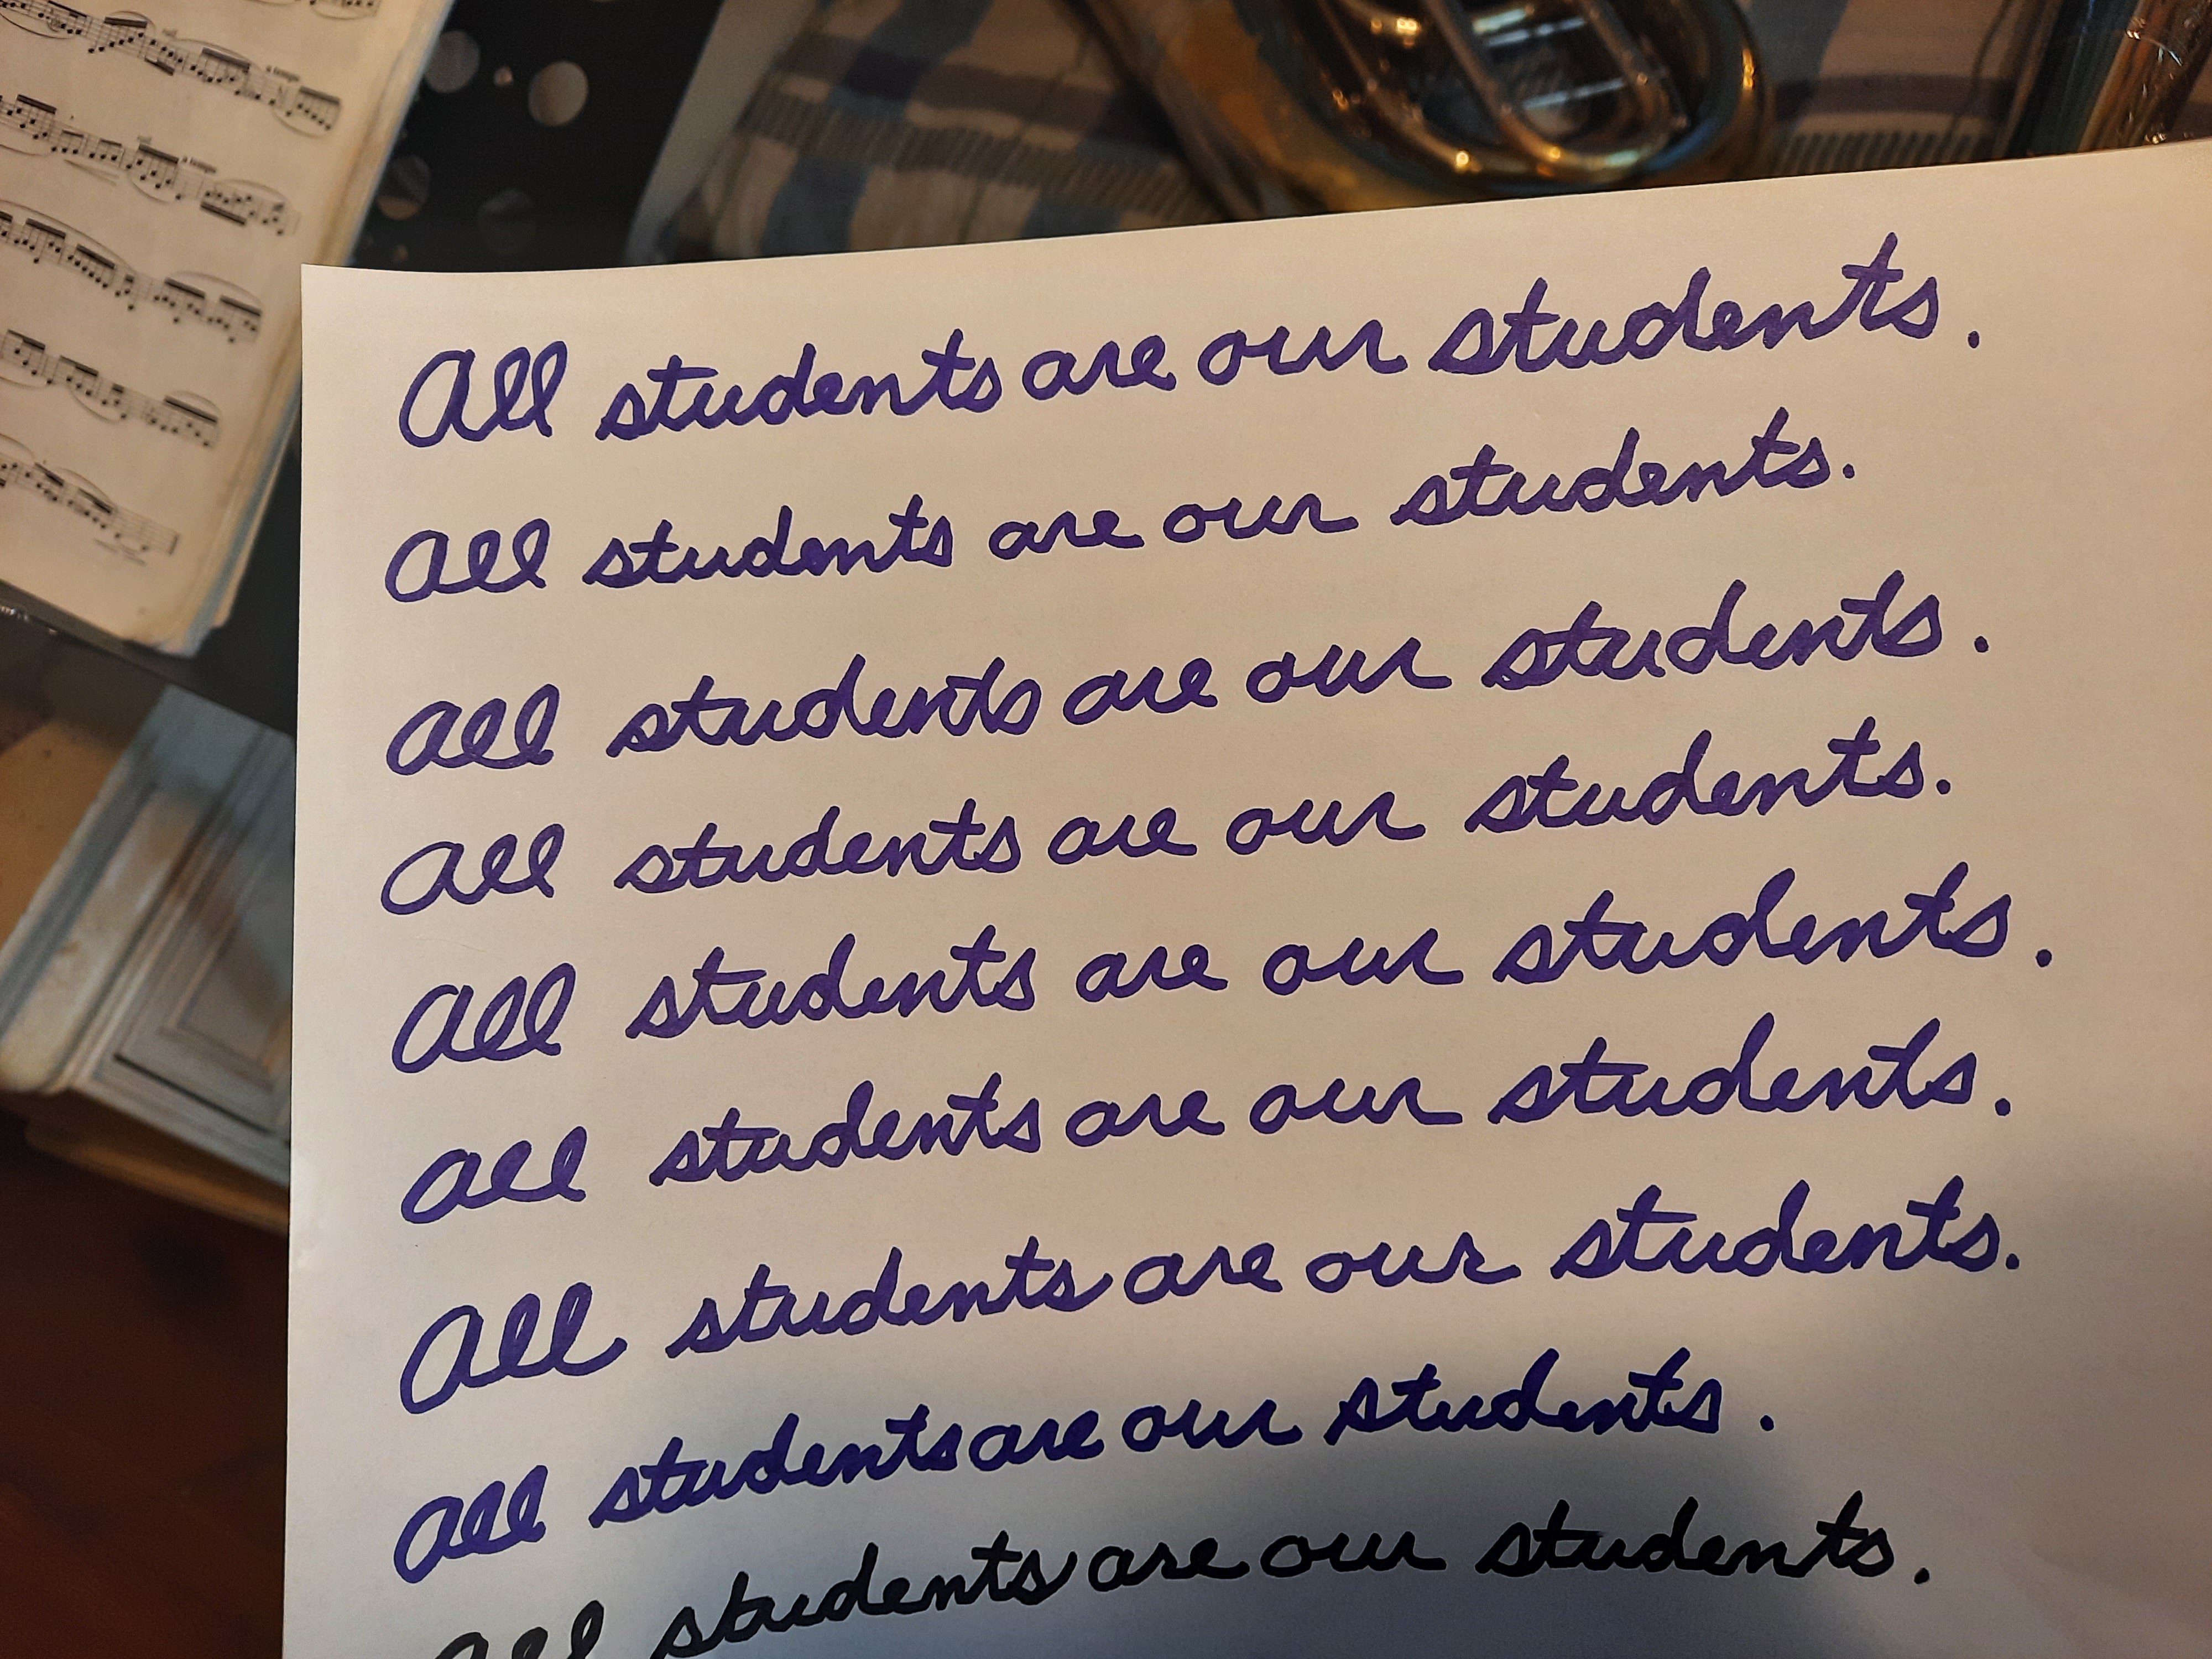 All students are our students.
All students are our students.
All students are our students.
All students are our students.
All students are our students.
All students are our students.
All students are our students.
All students are our students.
All students are our students.